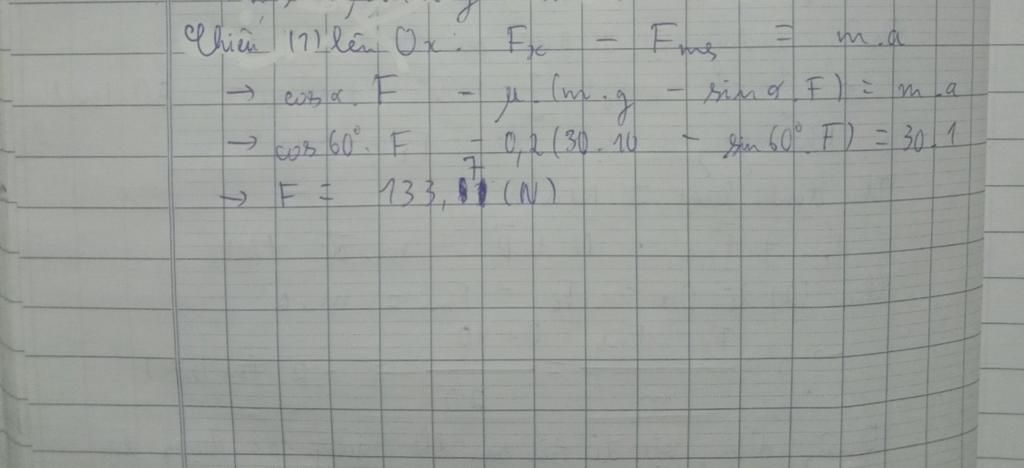 Chiếu (1) lên Ox: Fx - Fms = m.a
→ cosα. F - μ.(m.g - sinα.F) = m.a
→ cos60°. F - 0,2(30.10 - sin60°.F) = 30.1
→ F = 133,7 (N)